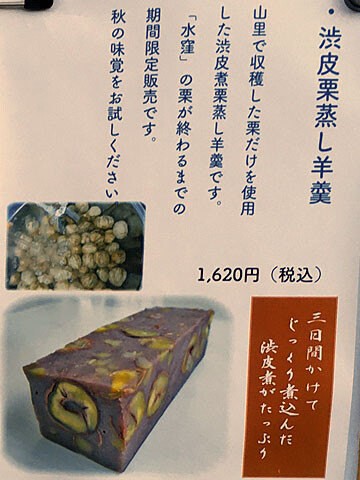 ・渋皮栗蒸し羊羹
山里で収穫した栗だけを使用
した渋皮煮栗蒸し羊羹です。
「水窪」の栗が終わるまでの
期間限定販売です。
秋の味覚をお試しください
1,620円（税込）
三日間かけて
じっくり煮込んだ
渋皮煮がたっぷり